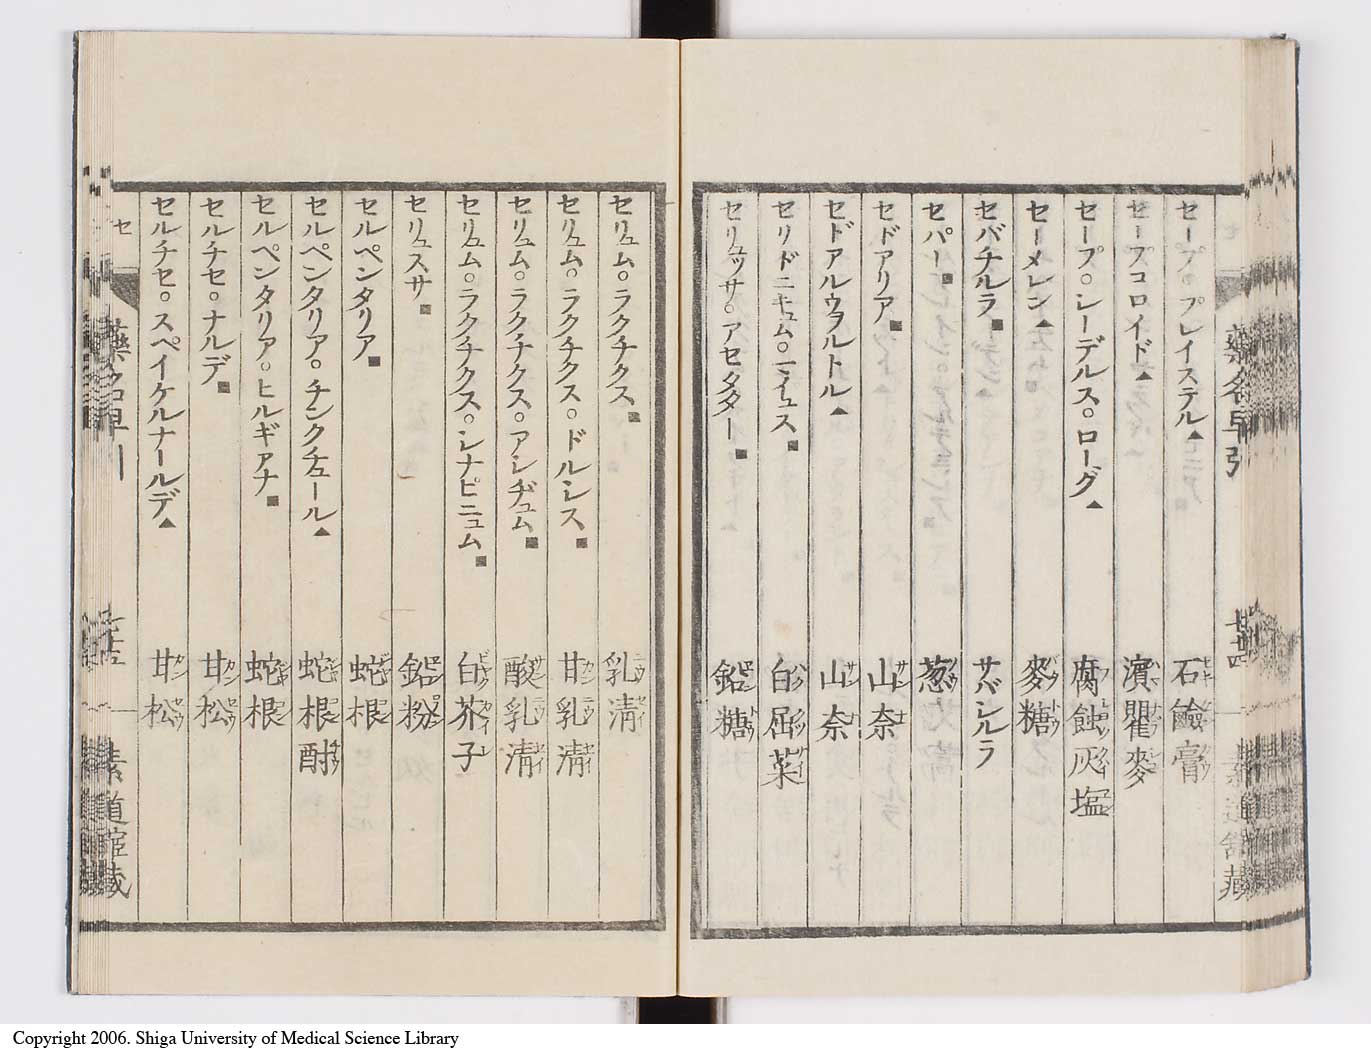 藥名早引
廿四
セープ。プレイステル▲ 石鹸膏
セープコロイド▲ 濱瞿麥
セープ。レーデルス。ローグ▲ 腐蝕灰塩
セーメレン▲ 麥糖
セバチルラ■ サバシルラ
セパー■ 葱
セドアリア■ 山奈
セドアルウヲルトル▲ 山奈
セリドニキュム。マイユス■ 白屈菜
セリュッサ。アセタター■ 鉛糖
セリュム。ラクチクス■ 乳清
セリュム。ラクチクス。ドルシス■ 甘乳清
セリュム。ラクチクス。アシヂュム■ 酸乳清
セリュム。ラクチクス。シナピニュム■ 白芥子
セリュスサ■ 鉛粉
セルペンタリア■ 蛇根
セルペンタリア。チンクチュール▲ 蛇根酎
セルペンタリア。ヒルギアナ■ 蛇根
セルチセ。ナルデ■ 甘松
セルチセ。スペイケルナールデ▲ 甘松
セ
Copyright 2006. Shiga University of Medical Science Library